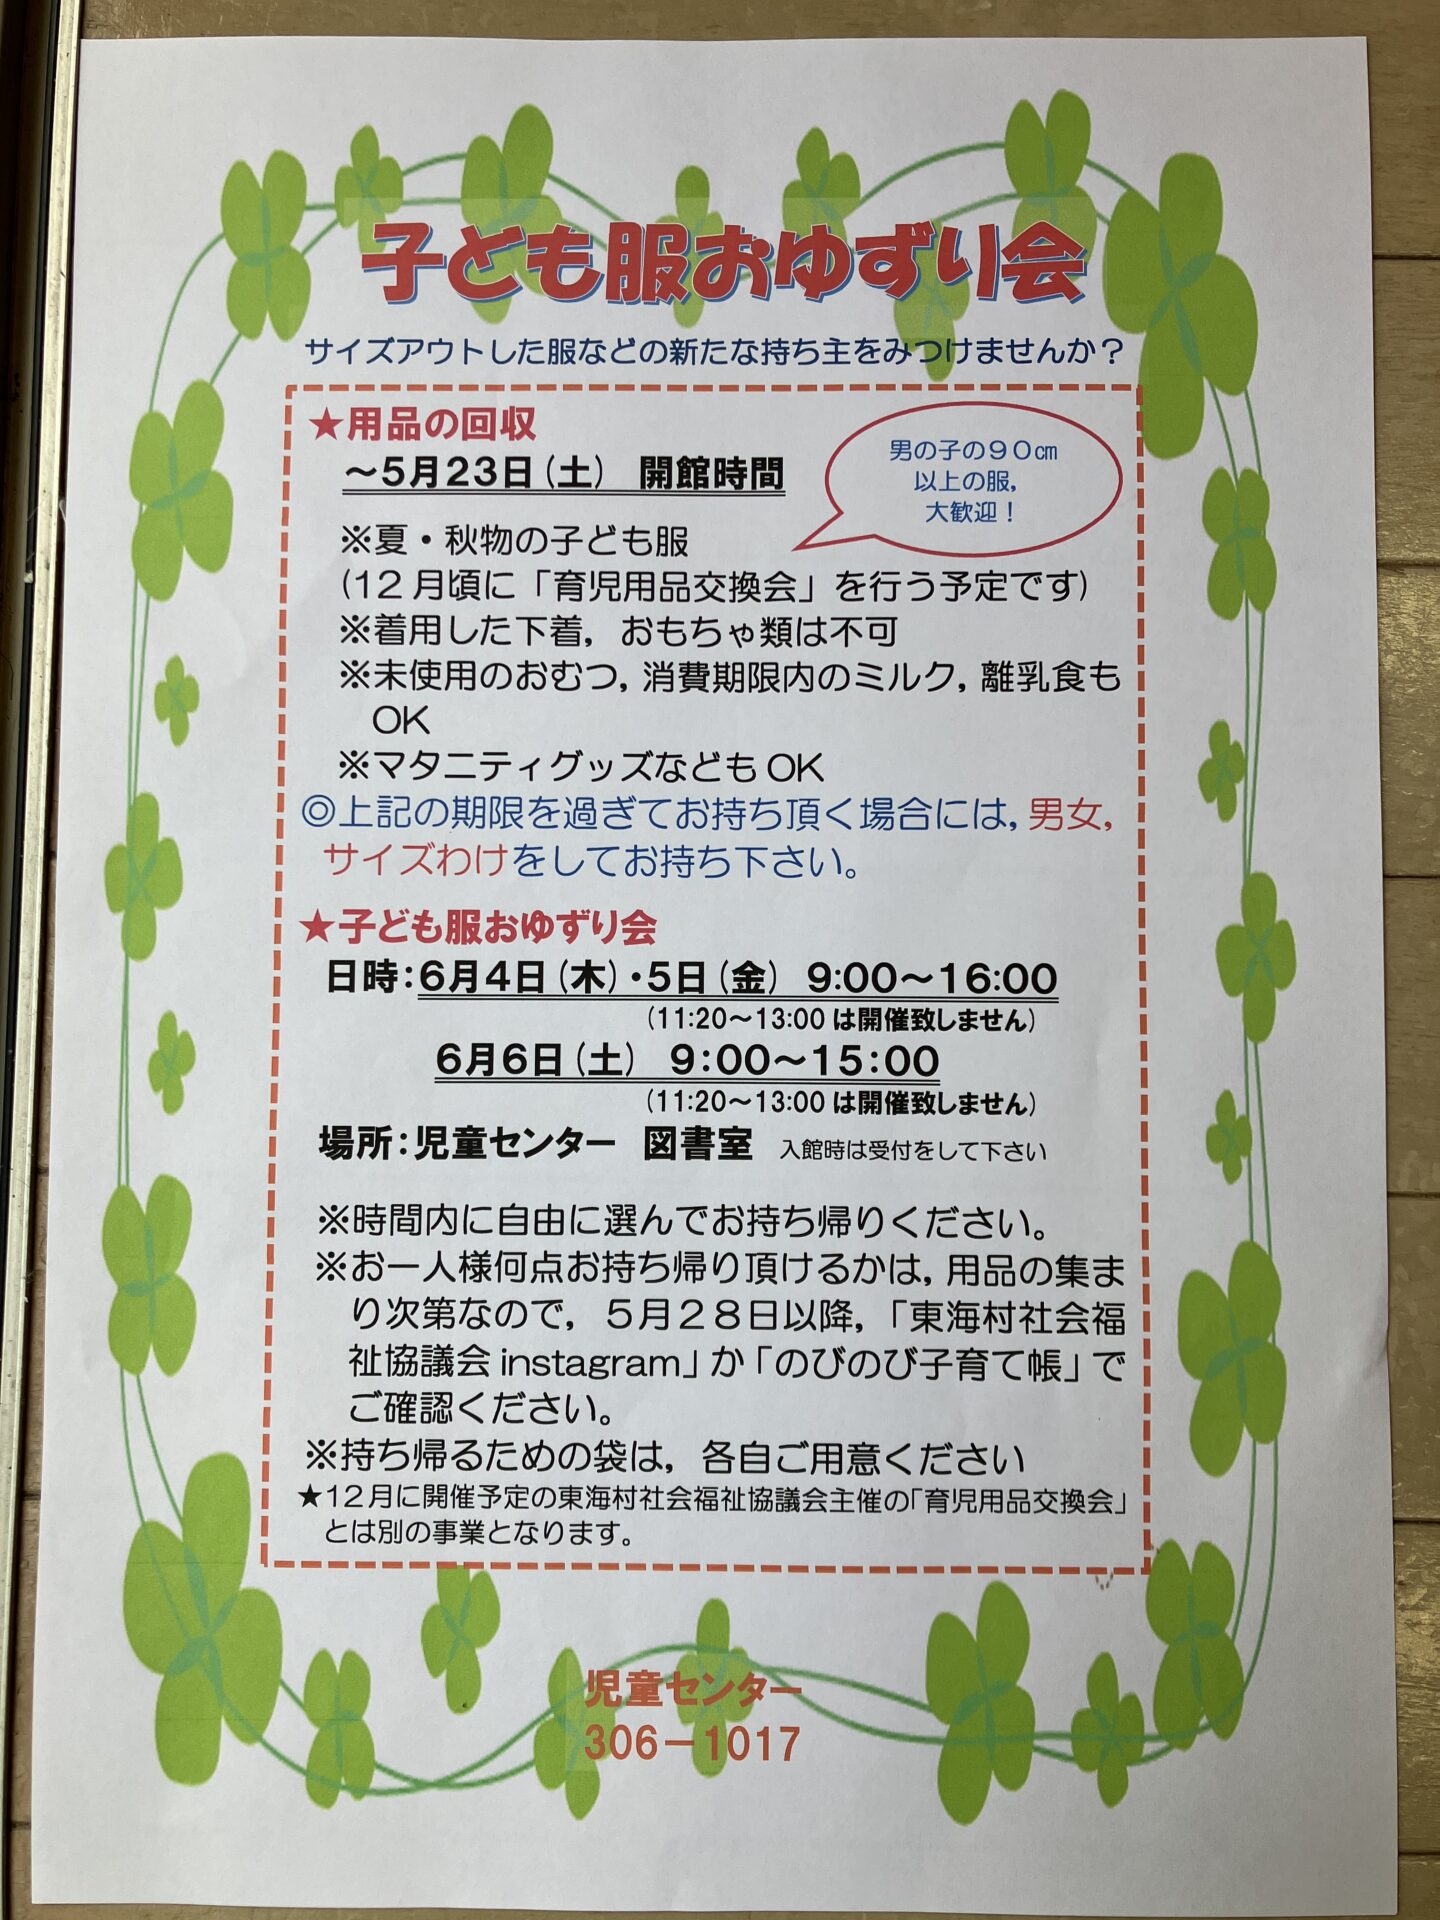 子ども服おゆずり会
サイズアウトした服などの新たな持ち主をみつけませんか？
★用品の回収
～5月23日(土)　開館時間
男の子の９０㎝
以上の服，
大歓迎！
※夏・秋物の子ども服
(12月頃に「育児用品交換会」を行う予定です)
※着用した下着，おもちゃ類は不可
※未使用のおむつ，消費期限内のミルク，離乳食も
OK
※マタニティグッズなどもOK
◎上記の期限を過ぎてお持ち頂く場合には，男女，
サイズわけをしてお持ち下さい。
★子ども服おゆずり会
日時：6月4日(木)・5日(金)　9:00～16:00
(11:20～13:00は開催致しません)
6月6日(土)　9：00～15：00
(11:20～13:00は開催致しません)
場所：児童センター　図書室　入館時は受付をして下さい
※時間内に自由に選んでお持ち帰りください。
※お一人様何点お持ち帰り頂けるかは，用品の集ま
り次第なので，５月２８日以降，「東海村社会福
祉協議会instagram」か「のびのび子育て帳」で
ご確認ください。
※持ち帰るための袋は，各自ご用意ください
★12月に開催予定の東海村社会福祉協議会主催の「育児用品交換会」
とは別の事業となります。
児童センター
306－1017